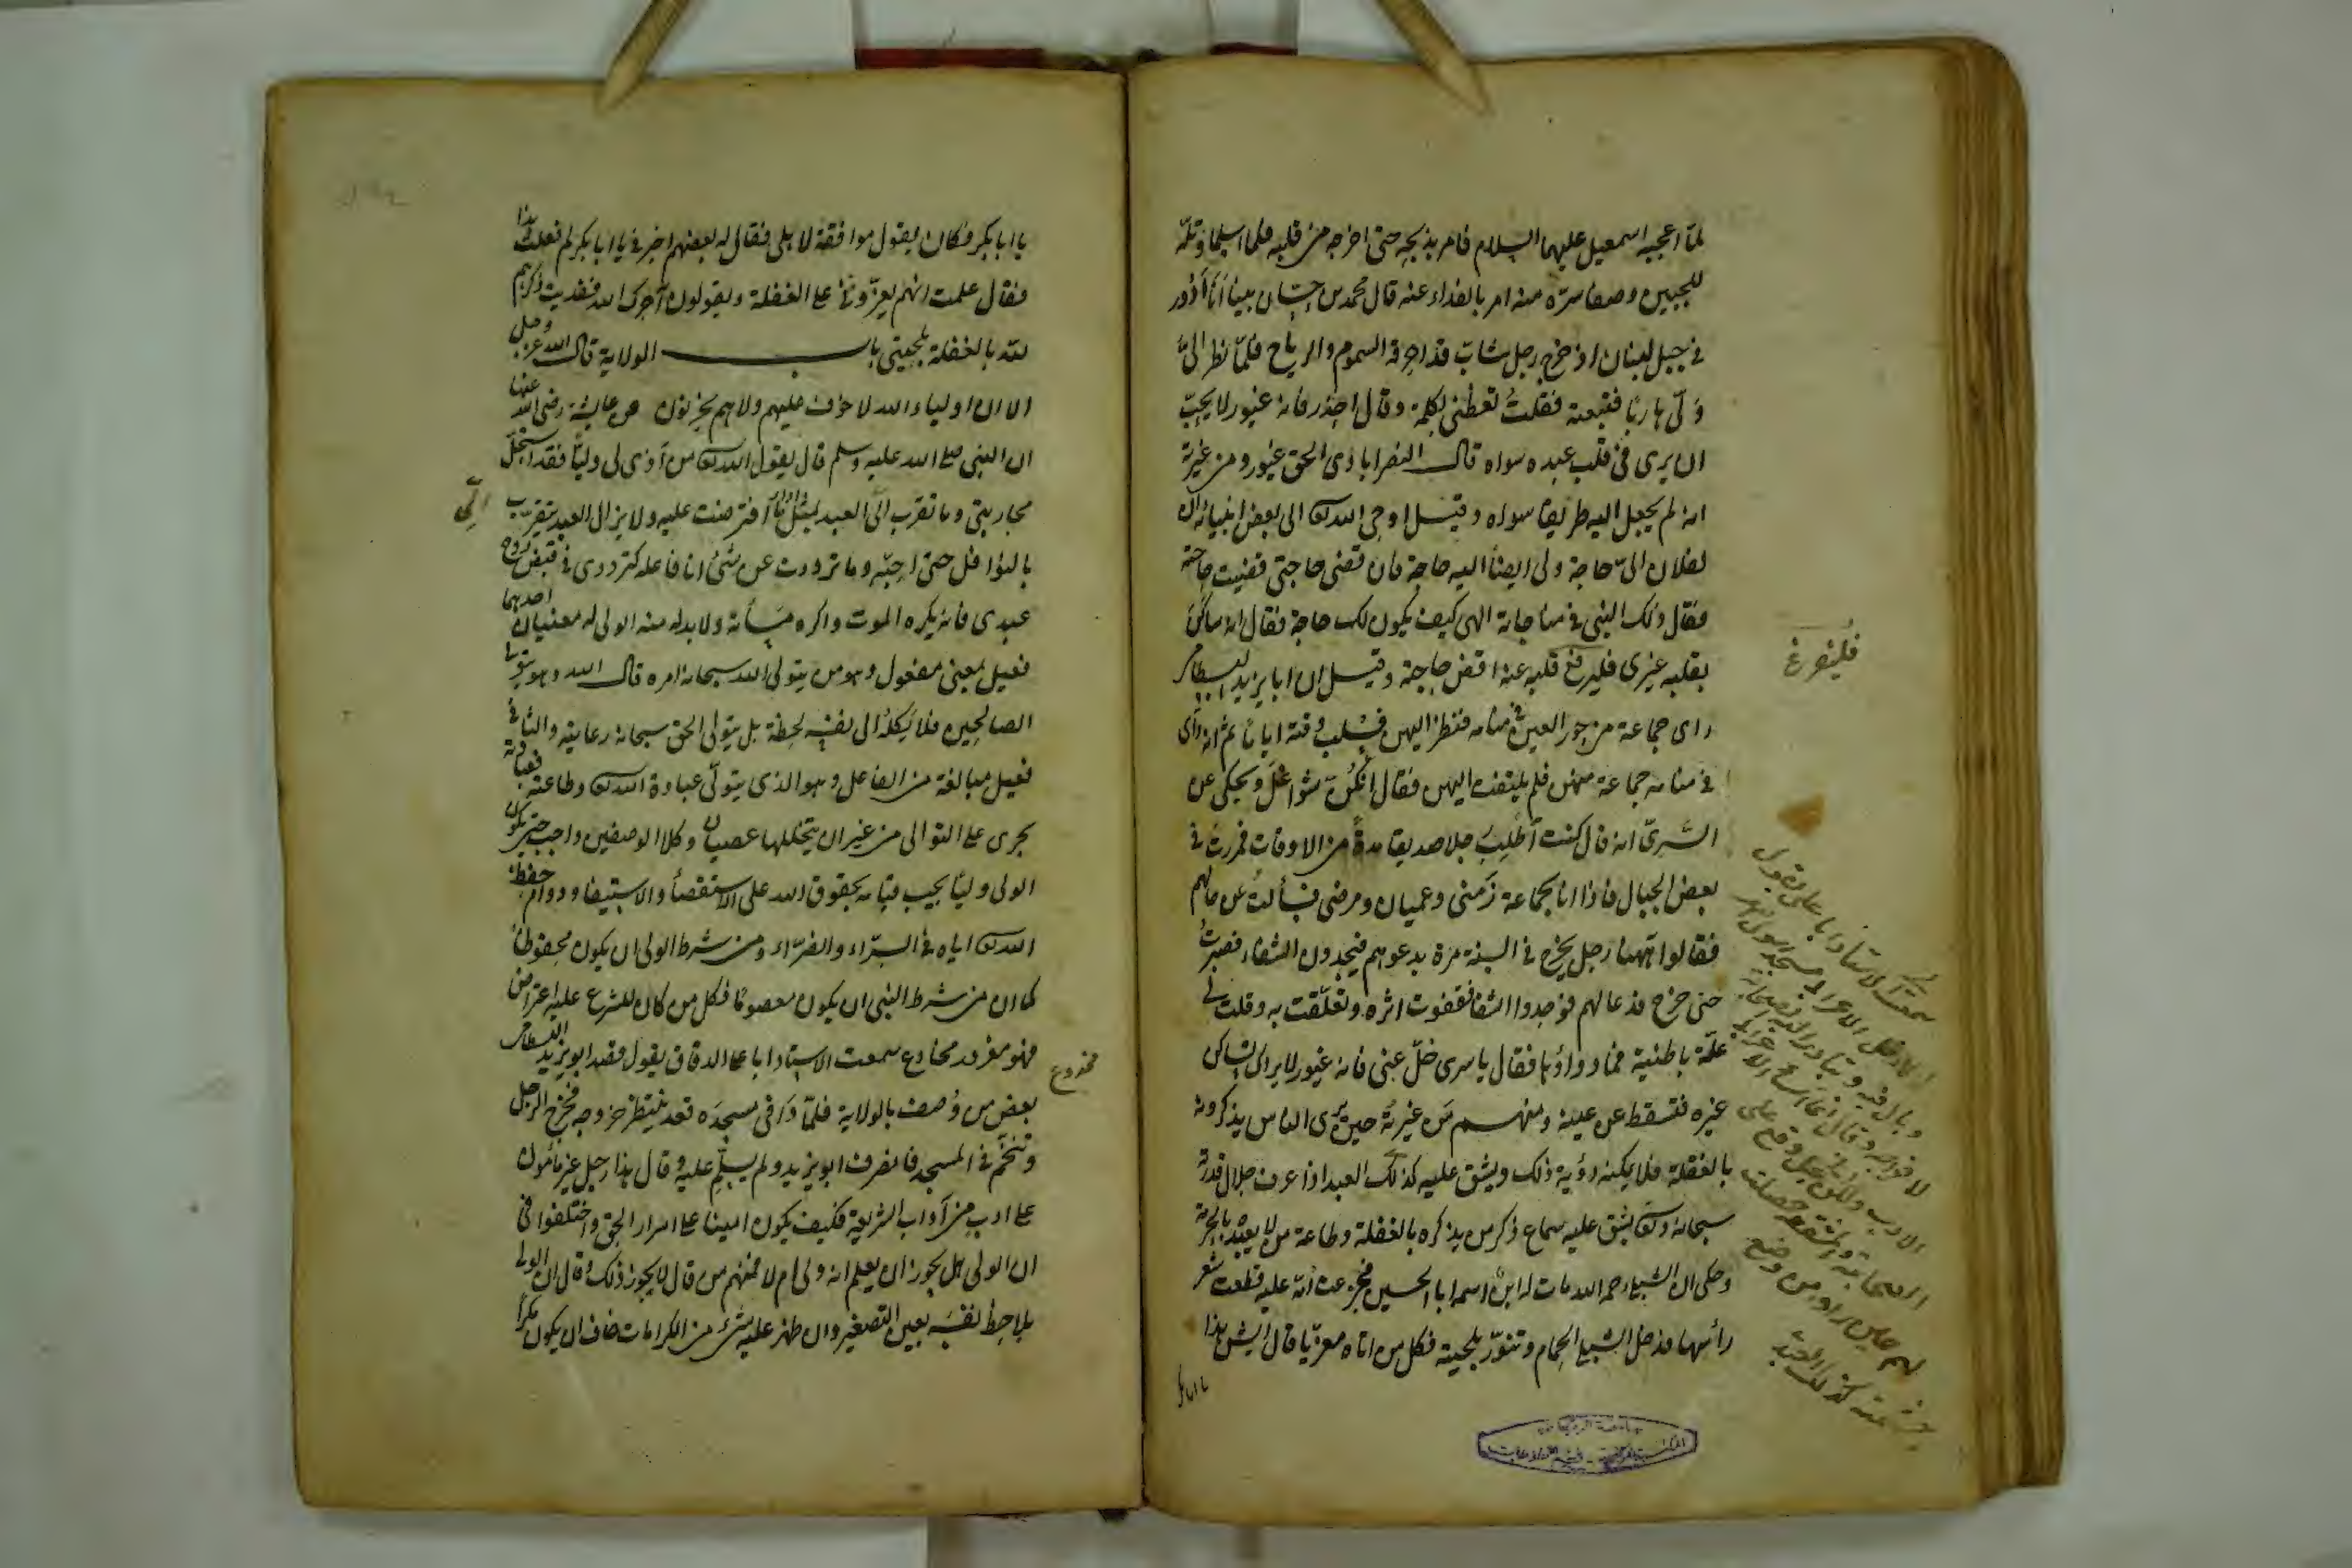 لمّا اعجبه اسمعيل عليهما السلام فامر بذبحه حتى اخرجه من قلبه فلما اسلما وتلّه
للجبين وصفا سرّه منه امر بالفداء عنه قال محمد بن حسّان بينا انا أدُور
في جبل لبنان اذ خرج رجل شابّ قد احرقه السموم والرياح فلمّا نظر اليّ
ولّى هاربا فتبعته فقلتُ تعظنى بكلمة وقال احذر فانه غيور لا يحبّ
ان يرى في قلب عبده سواه قال النصراباذى الحق غيور ومن غيرته
انه لم يجعل اليه طريقا سواه وقيل اوحى الله تعالى الى بعض انبيائه ان
لفلان الىّ حاجة ولى ايضاً اليه حاجة فان قضى حاجتى قضيت حاجته
فقال ذلك النبى في مناجاته الهى كيف يكون لك حاجة فقال انه ساكن
بقلبه غيرى فليفرغ قلبه عنه اقض حاجته وقيل ان ابا يزيد البسطامى
راى جماعة من حور العين في منامه فنظر اليهن فسلب وقته اياما ثم انه رأى
في منامه جماعة منهن فلم يلتفت اليهن فقال انكنّ شواغل ويحكى عن
السّرىّ انه قال كنت أطلب رجلا صديقا مدةً من الاوقات فمررت في
بعض الجبال فاذا انا بجماعة زَمنى وعميان ومرضى فسألتُ عن حالهم
فقالوا ههنا رجل يخرج في السنة مرة يدعو لهم فيجدون الشفاء فصبرتُ
حتى خرج فدعا لهم فوجدوا الشفا فقفوت اثره وتعلّقت به وقلت لى
علّة باطنية فما دواؤها فقال يا سرى خلّ عنى فانه غيور لا يراك تساكن
غيره فتسقط عن عينه ومنهم من غيرته حين يرى الناس يذكرونه
بالغفلة فلا يمكنه رؤية ذلك ويشق عليه كذلك العبد اذا عرف جلال قدره
سبحانه وتعالى يشق عليه سماع ذكر من يذكره بالغفلة وطاعة من لا يعبده بالحرمة
وحكى ان الشبلى رحمه الله مات له ابن اسمه ابا الحسين فجزعت أمّه عليه قطعت شعر
رأسها فدخل الشبلى الحمام وتنوّر بلحيته فكل من اتاه معزّيا قال ايش هذا
يا ابا بكر
فليفرغ
سمعت الاستاذ ابا على يقول
لما دخل الاعرابى مسجد رسول الله
وبال فيه وتبادر اليه الصحابة
يا ابا بكر وكان يقول موافقة لاهلى فقال له بعضهم اخبرنى يا ابا بكر لم فعلت هذا
فقال علمت انهم يعزّوننى على الغفلة ويقولون آجرك الله ففديت ذكرهم
لله بالغفلة بلحيتى باب الولاية قال الله عز وجل
الا ان اولياء الله لا خوف عليهم ولا هم يحزنون عن عايشة رضى الله عنها
ان النبى صلى الله عليه وسلم قال يقول الله تعالى من آذى لى وليّا فقد استحلّ
محاربتى وما تقرب الىّ العبد بمثل اداء ما افترضت عليه ولا يزال العبد يتقرب الىّ
بالنوافل حتى احبّه وما ترددت عن شئ انا فاعله كترددى في قبض روح
عبدى فانه يكره الموت واكره مسأته ولا بد له منه الولى له معنيان احدهما
فعيل بمعنى مفعول وهو من يتولى الله سبحانه امره قال الله وهو يتولى
الصالحين فلا يَكلُه الى نفسه لحظة بل يتولى الحق سبحانه رعايته والثانى
فعيل مبالغة من الفاعل وهو الذى يتولّى عبادة الله تعالى وطاعته فعبادته
يجرى على التوالى من غير ان يتخللها عصيان وكلا الوصفين واجب حتى يكون
الولى وليّا يجب قيامه بحقوق الله على الاستقصأ والاستيفا ودوام حفظ
الله تعالى اياه في السرّاء والضرّاء ومن شرط الولى ان يكون محفوظا
كما ان من شرط النبى ان يكون معصوما فكل من كان للشرع عليه اعتراض
فهو مغرور مخادع سمعت الاستاذ ابا على الدقاق يقول قصد ابو يزيد البسطامى
مخدوع
بعض من وُصف بالولاية فلمّا وَافى مسجدَه قعد ينتظر خروجه فخرج الرجل
وتنخّم في المسجد فانصرف ابو يزيد ولم يسلّم عليه وقال هذا رجل غير مأمون
على ادب من آداب الشريعة فكيف يكون امينا على اسرار الحق واختلفوا في
ان الولى هل يجوز ان يعلم انه ولى ام لا فمنهم من قال لا يجوز ذلك وقال ان الولى
يلاحظ نفسَه بعين التصغير وان ظهر عليه شئ من الكرامات خاف ان يكون مكراً